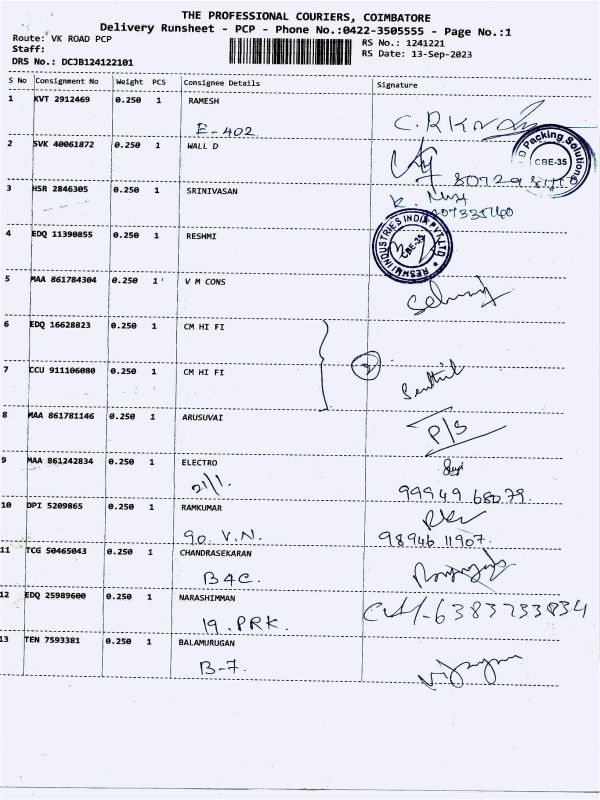 THE PROFESSIONAL COURIERS, COIMBATORE
Delivery Runsheet - PCP - Phone No.:0422-3505555 - Page No.:1
Route: VK ROAD PCP
RS No.: 1241221
Staff:
RS Date: 13-Sep-2023
DRS No.: DCJB124122101
S No Consignment No Weight PCS Consignee Details Signature
1 KVT 2912469 0.250 1 RAMESH
E-402
2 SVK 40061872 0.250 1 WALL D
D Packing Solutions
CBE-35
3 HSR 2846305 0.250 1 SRINIVASAN
4 EDQ 11390855 0.250 1 RESHMI
RESHMI INDUSTRIES INDIA PVT LTD
CBE-35
5 MAA 861784304 0.250 1 V M CONS
6 EDQ 16628823 0.250 1 CM HI FI
7 CCU 911106080 0.250 1 CM HI FI
2
Senthil
8 MAA 861781146 0.250 1 ARUSUVAI
P/S
9 MAA 861242834 0.250 1 ELECTRO
21/1.
99949 68079.
10 DPI 5209865 0.250 1 RAMKUMAR
90. V.N.
98946 11907.
11 TCG 50465043 0.250 1 CHANDRASEKARAN
B4C.
12 EDQ 25989600 0.250 1 NARASHIMMAN
19. PRK.
6383733834
13 TEN 7593381 0.250 1 BALAMURUGAN
B-7.